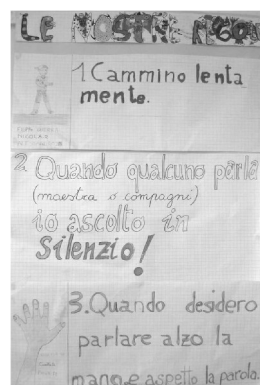 LE NOSTRE REGO
1 Cammino lenta
mente.
2 Quando qualcuno parla
(maestra o compagni)
io ascolto in
Silenzio!
3. Quando desidero
parlare alzo la
mano e aspetto la parola.